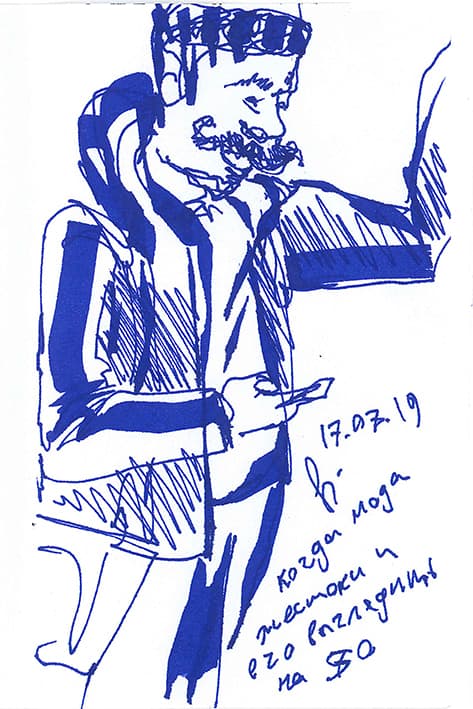 17.07.19
когда мода
жестока и
его выглядишь
на 50